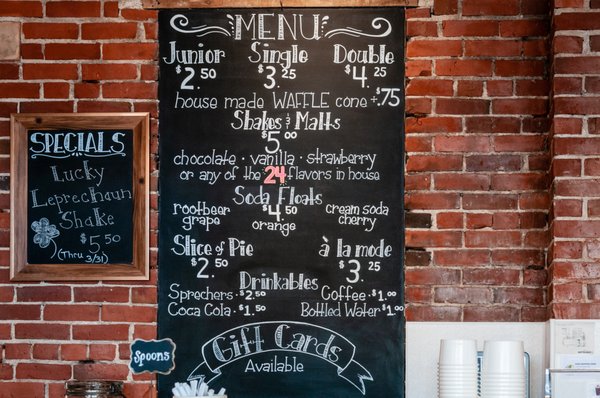 MENU
Junior Single Double
$2.50 $3.25 $4.25
house made WAFFLE cone + $.75
Shakes & Malts
$5.00
chocolate · vanilla · strawberry
or any of the 24 flavors in house
Soda Floats
$4.50
rootbeer
grape
orange
cream soda
cherry
Slice of Pie à la mode
$2.50 $3.25
Drinkables
Sprechers · $2.50 Coffee · $1.00
Coca Cola · $1.50 Bottled Water · $1.00
Gift Cards
Available
SPECIALS
Lucky
Leprechaun
Shake
$5.50
(Thru 3/31)
Spoons